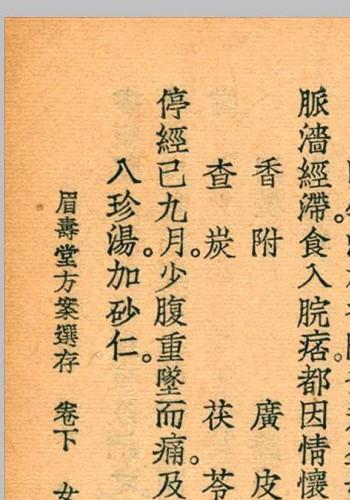 脈濇經滯。食入脘痞。都因情懷
香附　廣皮
查炭　茯苓
停經已九月。少腹重墜而痛。及
八珍湯。加砂仁。
眉壽堂方案選存　卷下　女